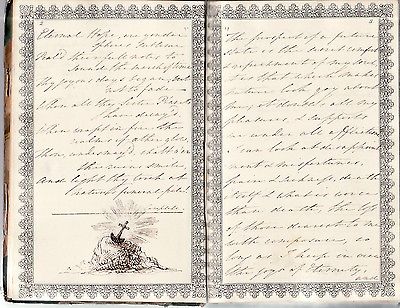 3
Eternal Hope, in yonder
spheres sublime
Peal'd their first notes to
sound the march of time
Thy joyous days began, but
not to fade
When all the Sister Planets
have decay'd
When wrapt in fire the
realms of ether glow
Thou, undismay'd, shalt o'er
the ruins smile
And light thy torch at
Nature's funeral pile!
3
"The prospect of a future
state is the secret comfort
& refreshment of my soul,
it is that which makes
nature look gay about
me, it doubles all my
pleasures & supports
me under all afflictions
I can look at disappoint
ments & misfortunes,
pain & sickness, death
itself & what is worse
than death, the loss
of those dearest to me
with composure, so
long as I keep in view
the joys of Eternity
and